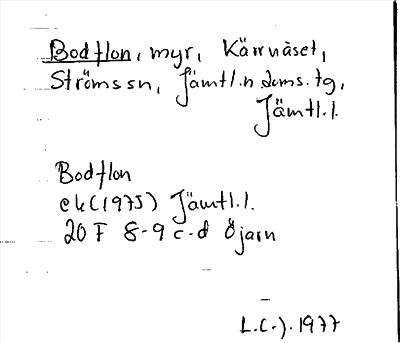 Bodflon, myr, Kärrnäset,
Strömssn, Jämtl.n doms.tg,
Jämtl.l.
Bodflon
ek (1975) Jämtl.l.
20 F 8-9 c-d Öjarn
L.C-). 1977